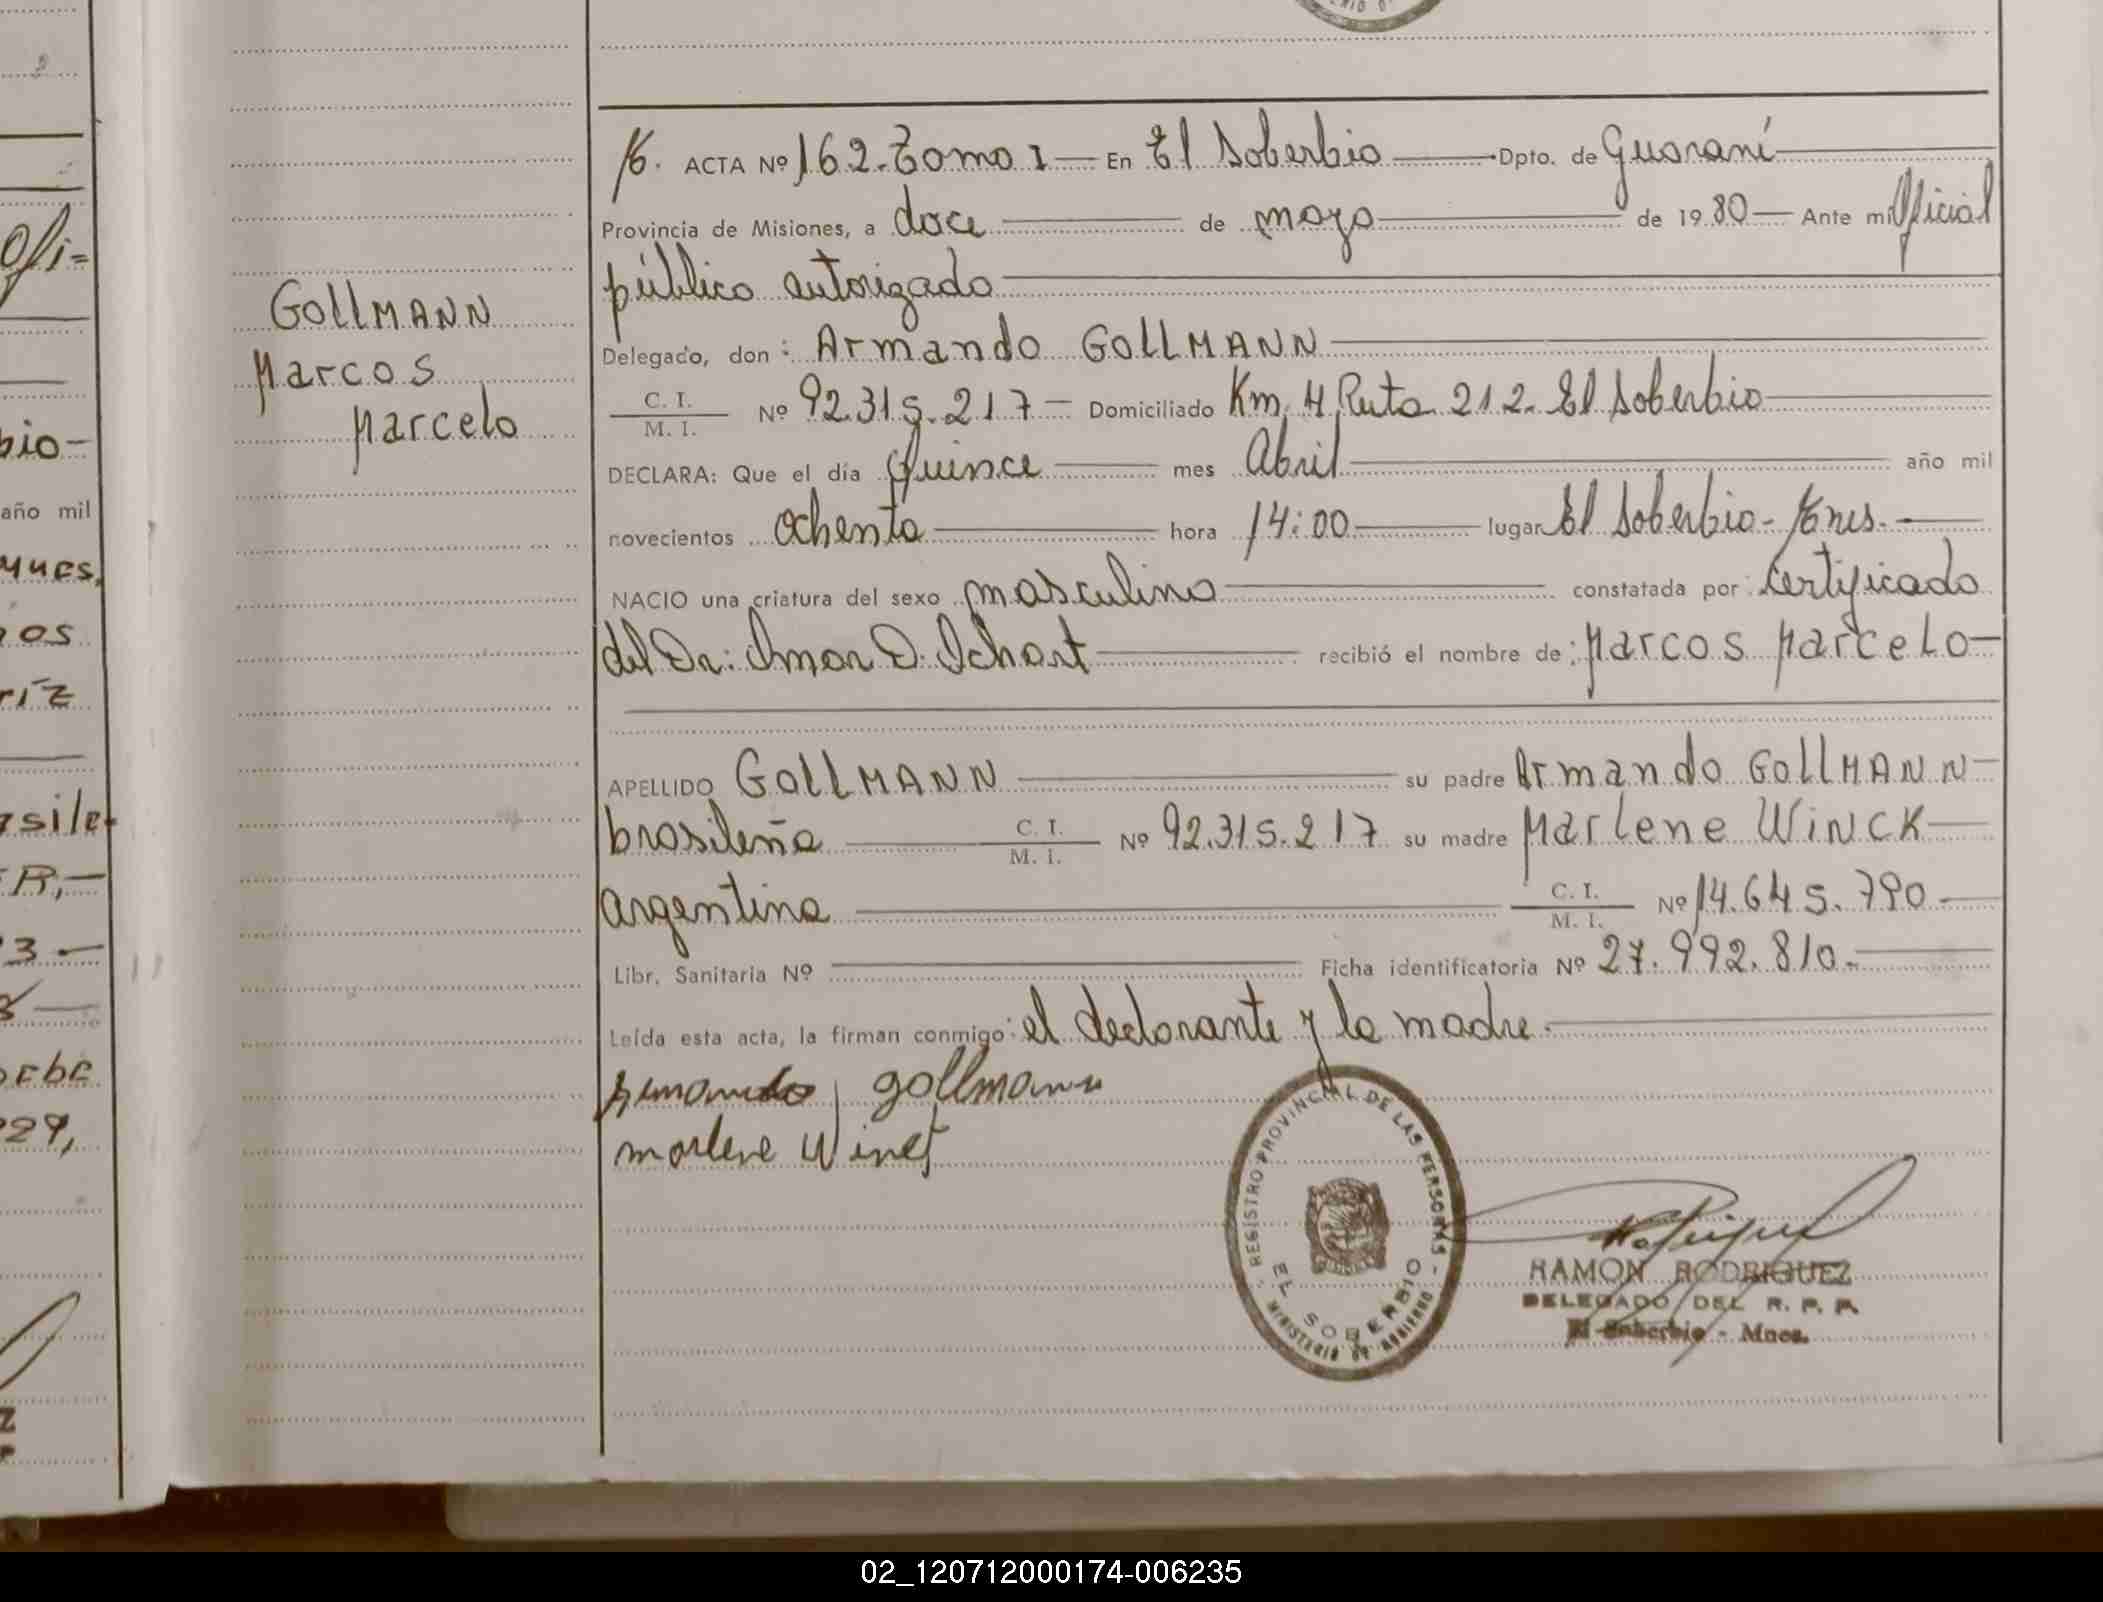 GOllMANN
Marcos
Marcelo
ACTA Nº 162. Tomo I — En El Soberbio — Dpto. de Guaraní
Provincia de Misiones, a doce — de mayo — de 1980 — Ante mi Oficial
público autorizado
Delegado, don: Armando GOllMANN
C. I. / M. I. Nº 92.315.217 — Domiciliado Km. 4 Ruta 212. El Soberbio
DECLARA: Que el día Quince — mes Abril — año mil
novecientos ochenta — hora 14:00 — lugar El Soberbio - Mnes.
NACIO una criatura del sexo masculino — constatada por: Certificado
del Dr: Omar D. Ichart — recibió el nombre de: Marcos Marcelo
APELLIDO GOllMANN — su padre Armando GOllMANN
brasileña — C. I. / M. I. Nº 92.315.217 su madre Marlene WiNCK
argentina — C. I. / M. I. Nº 14.645.790.
Libr. Sanitaria Nº — Ficha identificatoria Nº 27.992.810.
Leída esta acta, la firman conmigo: el declarante y la madre.
gollmann
marlene
REGISTRO PROVINCIAL DE LAS PERSONAS
EL SOBERBIO
MINISTERIO DE GOBIERNO
RAMON RODRIGUEZ
DELEGADO DEL R. P. P.
El Soberbio - Mnes.
02_120712000174-006235